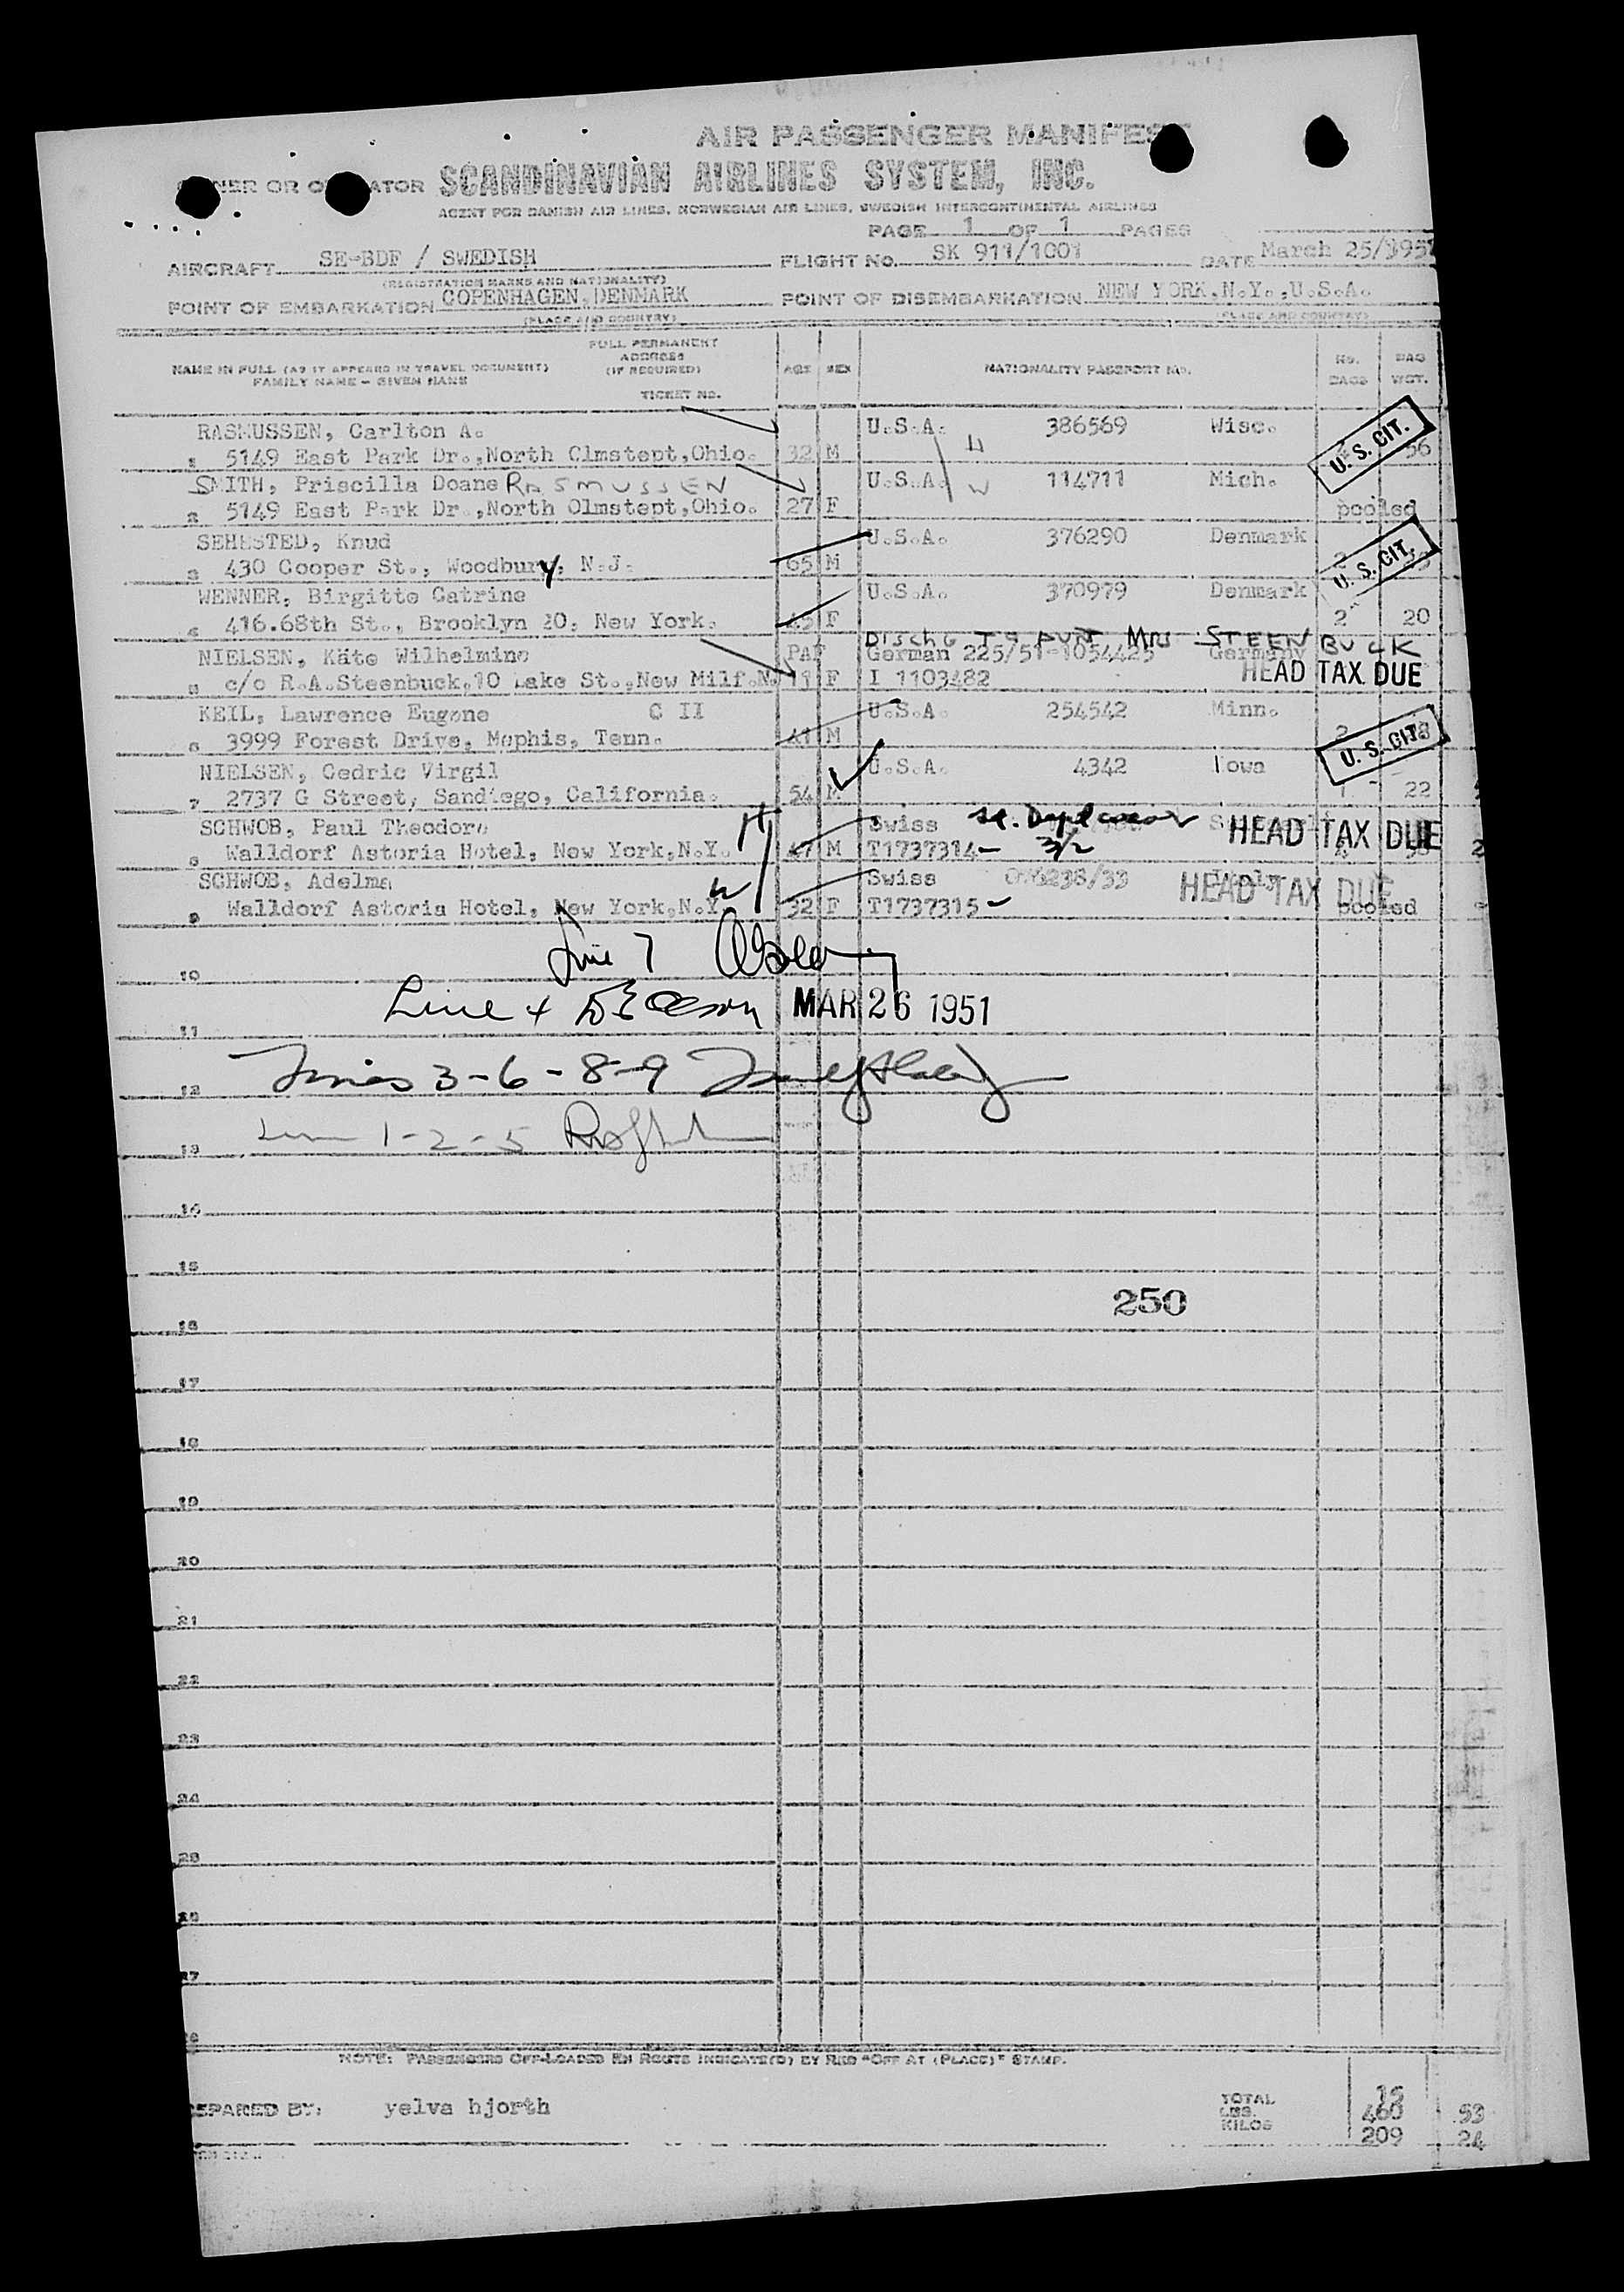 AIR PASSENGER MANIFEST
SCANDINAVIAN AIRLINES SYSTEM, INC.
AGENT FOR DANISH AIR LINES, NORWEGIAN AIR LINES, SWEDISH INTERCONTINENTAL AIRLINES
PAGE 1 OF 1 PAGES
AIRCRAFT SE-BDF / SWEDISH FLIGHT NO. SK 911/1001 DATE March 25/1951
(REGISTRATION MARKS AND NATIONALITY)
POINT OF EMBARKATION COPENHAGEN, DENMARK POINT OF DISEMBARKATION NEW YORK, N.Y., U.S.A.
(PLACE AND COUNTRY) (PLACE AND COUNTRY)
NAME IN FULL (AS IT APPEARS IN TRAVEL DOCUMENT) FAMILY NAME - GIVEN NAME FULL PERMANENT ADDRESS (IF REQUIRED) TICKET NO. AGE SEX NATIONALITY PASSPORT NO. NO. BAGS BAG WGT.
RASMUSSEN, Carlton A. U.S.A. H 386569 Wisc. U. S. CIT.
1 5149 East Park Dr., North Olmstept, Ohio. 32 M 56
SMITH, Priscilla Doane RASMUSSEN U.S.A. W 114711 Mich.
2 5149 East Park Dr., North Olmstept, Ohio. 27 F pooled
SEHESTED, Knud U.S.A. 376290 Denmark U. S. CIT.
3 430 Cooper St., Woodbury, N.J. 65 M
WENNER, Birgitte Catrine U.S.A. 370979 Denmark
4 416.68th St., Brooklyn 20, New York. 45 F 2 20
DISCHG TO AUNT MRS STEENBUCK
NIELSEN, Käte Wilhelmine PAF German 225/51-1054425 Germany
5 c/o R.A.Steenbuck, 10 Lake St., New Milf.N. 11 F I 1103482 HEAD TAX DUE
KEIL, Lawrence Eugene C II U.S.A. 254542 Minn.
6 3999 Forest Drive, Mephis, Tenn. 41 M 2 U. S. CIT.
NIELSEN, Cedric Virgil U.S.A. 4342 Iowa
7 2737 G Street, Sandiego, California. 54 M 22
SCHWOB, Paul Theodore H Swiss HEAD TAX DUE
8 Walldorf Astoria Hotel, New York, N.Y. 47 M T1737314 - 3/2
SCHWOB, Adelma W Swiss HEAD TAX DUE
9 Walldorf Astoria Hotel, New York, N.Y. 32 F T1737315 - pooled
Line 7
10
Line 4 MAR 26 1951
11
Lines 3-6-8-9
12
Line 1-2-5
13
14
15
250
16
17
18
19
20
21
22
23
24
25
26
27
28
NOTE: PASSENGERS OFF-LOADED EN ROUTE INDICATE(D) BY RED "OFF AT (PLACE)" STAMP.
PREPARED BY: yelva hjorth TOTAL 15
LBS. 460 53
KILOS 209 24